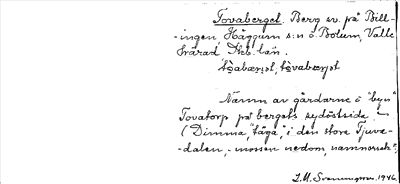 Tovaberget. Berg sv. på Bill-
ingen, Häggum s:n o Bolum, Valle
härad Skb. län.
Namn av gårdarne o "byn"
Tovatorp på bergets sydöstsida.
(Dimma, "tåga", i den stora Tjuva-
dalen, mossen nedom,
S.M. Svenungsson. 1946.